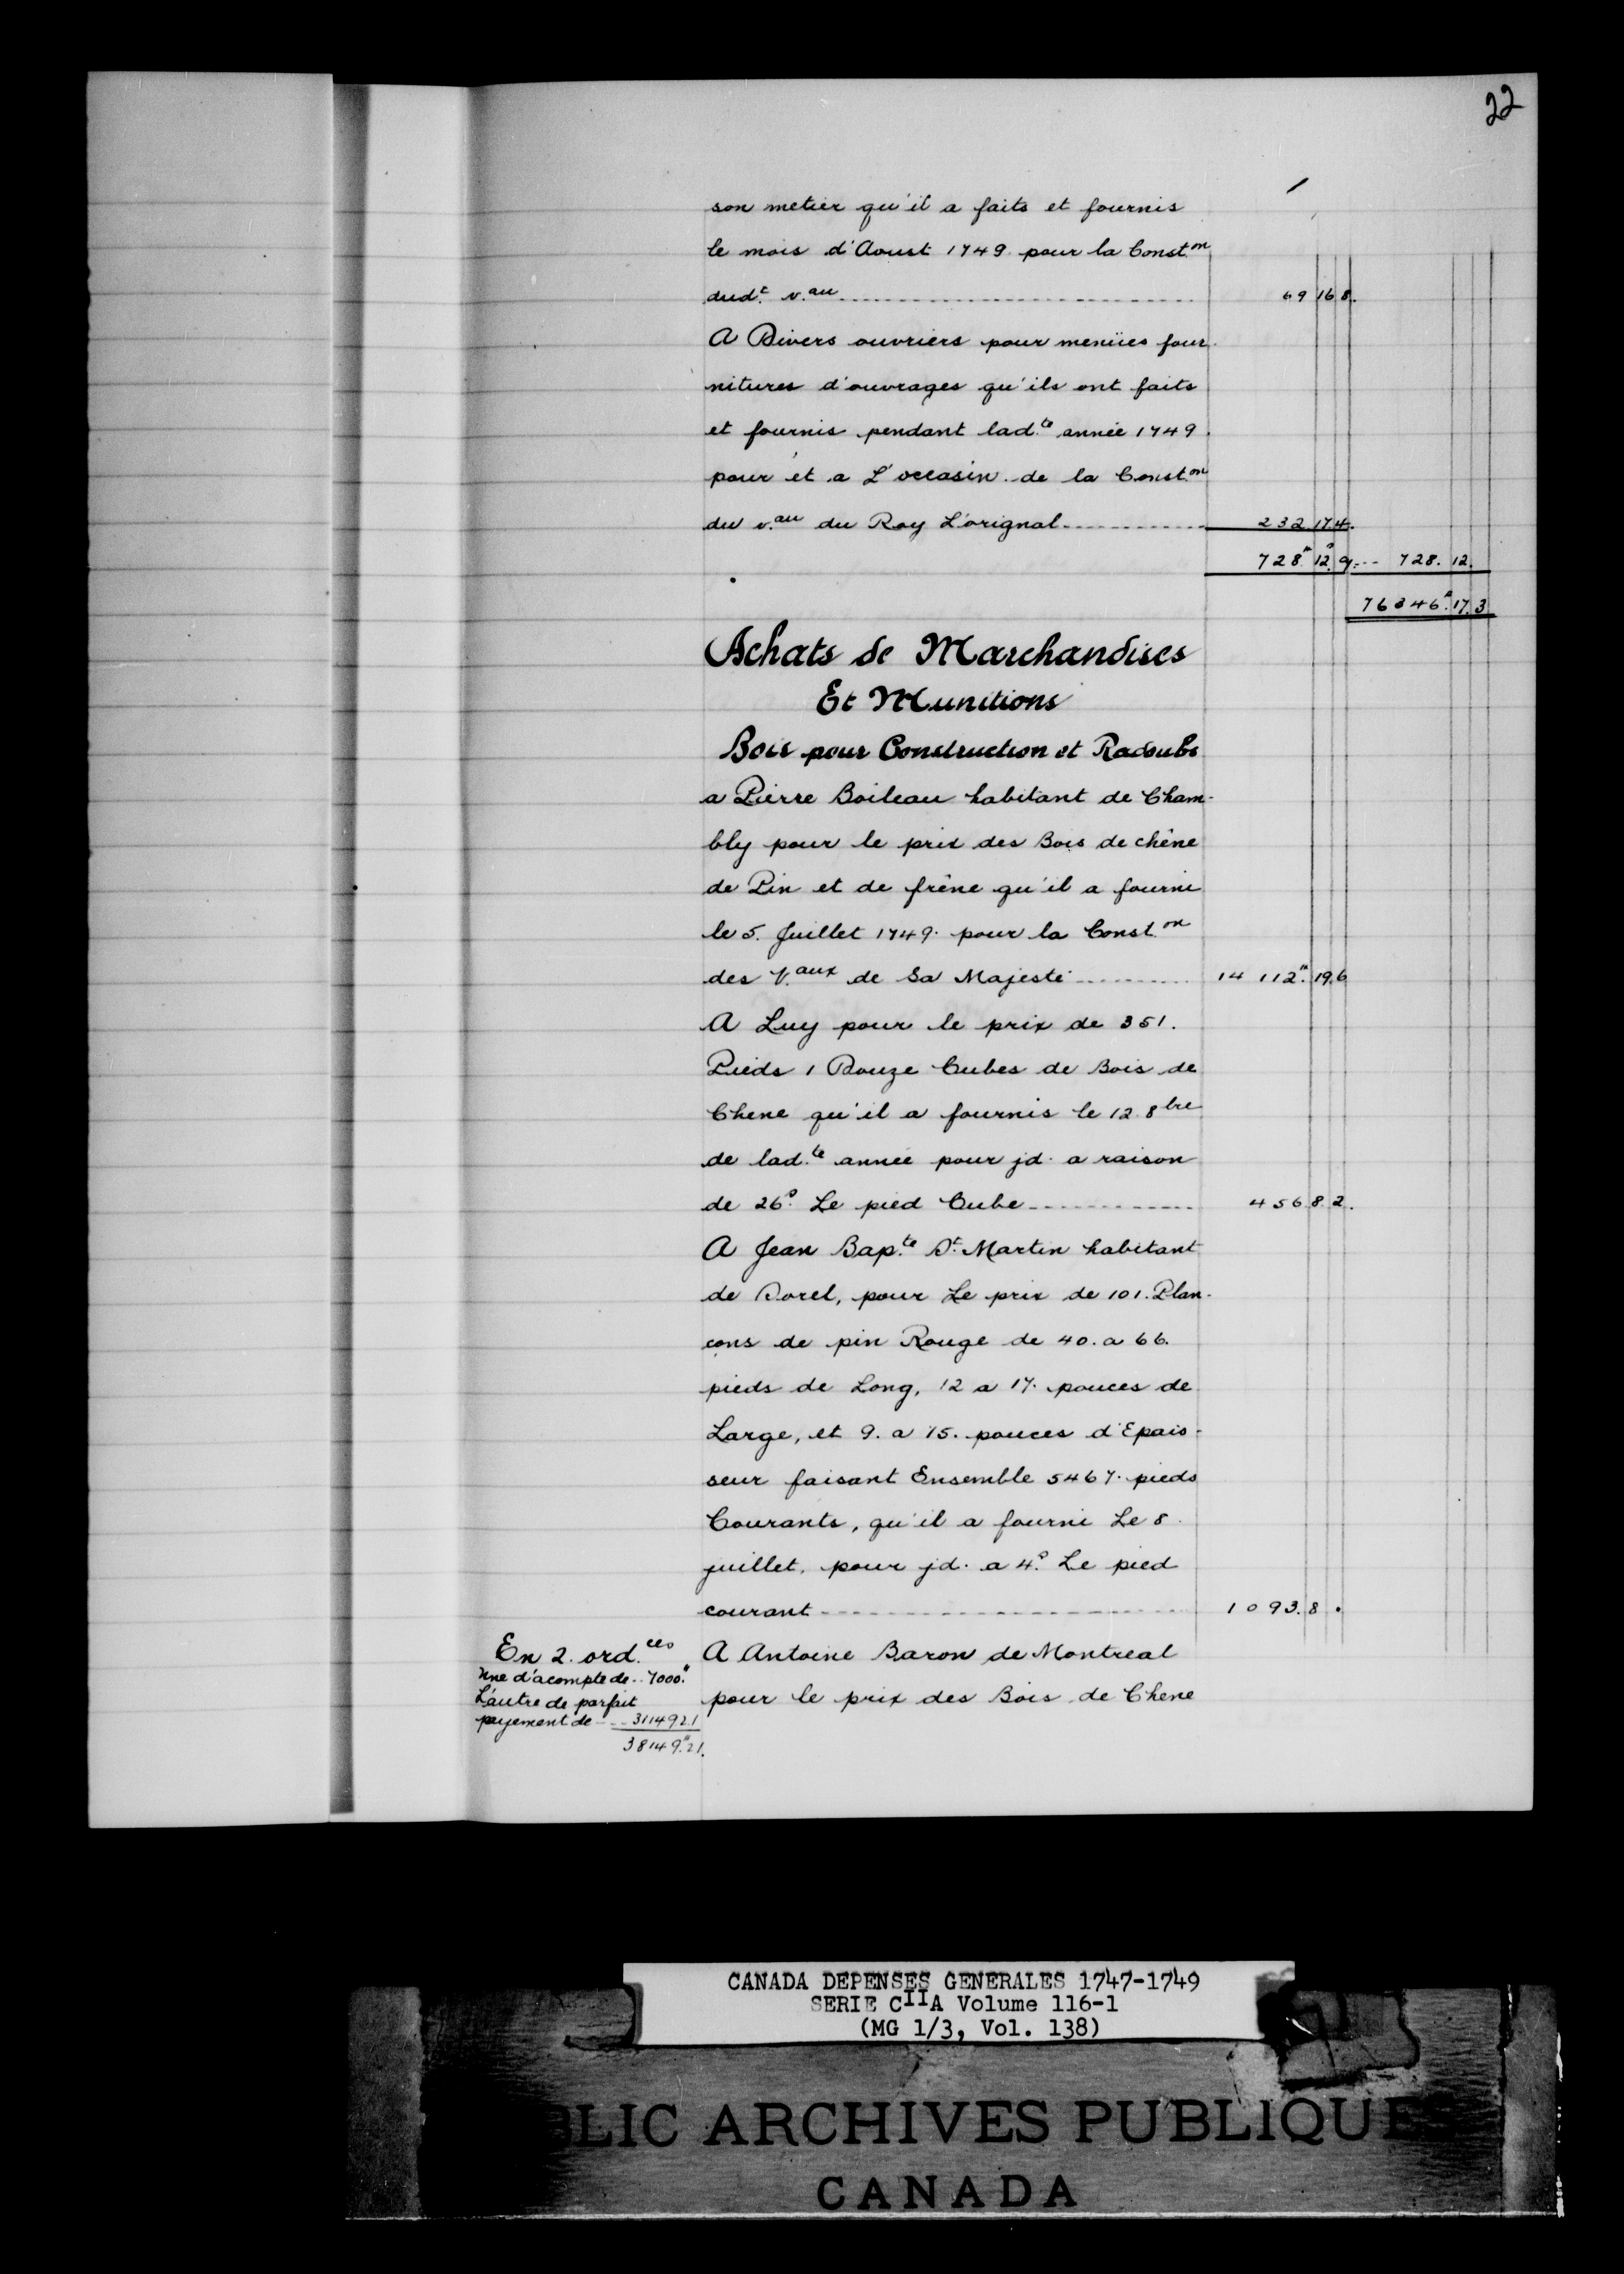 22
son metier qu'il a faits et fournis
le mois d'Aoust 1749 pour la Const.on
dud.t v.au ---------- 69 16 8.
A Divers ouvriers pour menües four-
nitures d'ouvrages qu'ils ont faits
et fournis pendant lad.te année 1749.
pour et a L'occasin de la Const.on
du v.au du Roy L'orignal ---------- 232.17.4.
728.# 12.s 9. -- 728. 12.
76346.# 17.3
Achats de Marchandises
Et Munitions
Bois pour Construction et Radoubs
a Pierre Boileau habitant de Cham-
bly pour le prix des Bois de chêne
de Pin et de frêne qu'il a fourni
le 5. Juillet 1749. pour la Const.on
des V.aux de Sa Majesté ---------- 14 112.# 19.6
A Luy pour le prix de 351.
Pieds 1 Douze Cubes de Bois de
Chene qu'il a fournis le 12 8bre
de lad.te année pour jd. a raison
de 26.s Le pied Cube ---------- 456 8. 2.
A Jean Bap.te St. Martin habitant
de Sorel, pour Le prix de 101. Plan-
çons de pin Rouge de 40. a 66.
pieds de Long, 12 a 17. pouces de
Large, et 9. a 15. pouces d'Epais-
seur faisant Ensemble 5467. pieds
Courants, qu'il a fourni Le 8.
juillet, pour jd. a 4.s Le pied
courant ---------- 1093. 8 .
A Antoine Baron de Montreal
pour le prix des Bois de Chene
En 2. ord.ces
Une d'acompte de .. 7000.#
L'autre de parfait
payement de --- 3114921
38149.#21.
CANADA DEPENSES GENERALES 1747-1749
SERIE CIIA Volume 116-1
(MG 1/3, Vol. 138)
BLIC ARCHIVES PUBLIQUE
CANADA